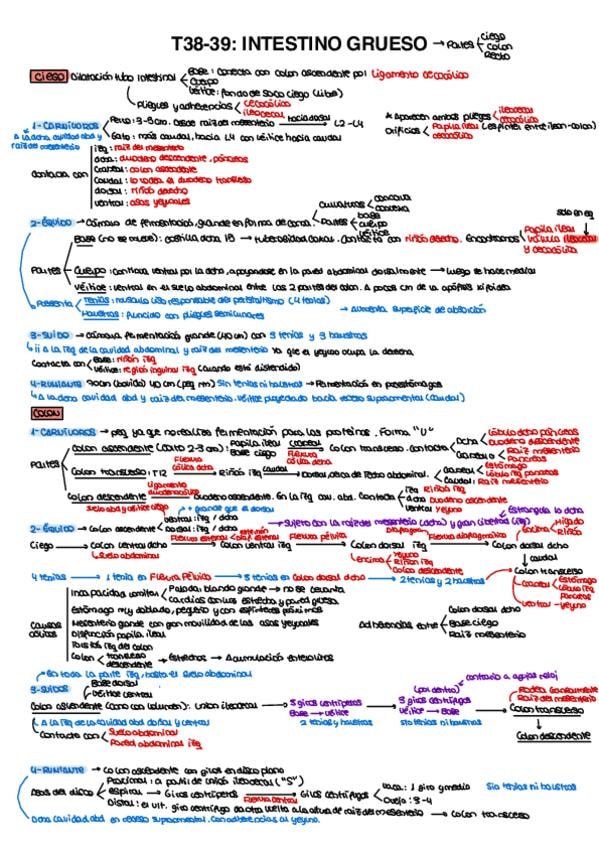 T38-39: INTESTINO GRUESO → Partes ciego
colon
recto
CIEGO Dilatación tubo intestinal Base: conecta con colon ascendente por Ligamento cecocólico
Cuerpo
Vértice: fondo de saco ciego (libre)
Pliegues y adherencias cecocólico
ileocecal
1-CARNÍVOROS Perro: 3-5cm. Desde raíz del mesenterio hacia caudal → L2-L4
* Aparecen ambos pliegues ileocecal
cecocólico
A la dcha cavidad abd y raíz del mesenterio
Gato: más caudal, hacia L4 con vértice hacia caudal
Orificios Papila ileal (esfínter entre íleon-colon)
cecocólico
Contacta con
izq: raíz del mesenterio
dcha: duodeno descendente, páncreas
Craneal: colon ascendente
Caudal: lo rodea el duodeno transverso
dorsal: riñón derecho
ventral: asas yeyunales
2-ÉQUIDO → Cámara de fermentación, grande en forma de coma. Partes base
cuerpo
vértice
Curvaturas concava
convexa
solo en eq
Partes
Base (no se mueve): costilla dcha 15 → tuberosidad coxal. Contacta con riñón derecho. Encontramos Papila ileal
Válvula ileocecal
y cecocólico
Cuerpo: continúa ventral por la dcha, apoyándose en la pared abdominal dorsalmente → luego se hace medial
Vértice: ventral en el suelo abdominal entre las 2 partes del colon. A pocos cm de la apófisis xifoidea
Presenta Tenias: músculo liso responsable del peristaltismo (4 tenias)
Haustras: funcion con pliegues semilunares → aumenta superficie de absorción
3-SUIDO → cámara fermentación grande (40 cm) con 3 tenias y 3 haustras
↳ ¡¡ A la izq de la cavidad abdominal y raíz del mesenterio ya que el yeyuno ocupa la derecha
Contacta con Base: Riñón izq
Vértice: región inguinal izq (cuando está distendido)
4-RUMIANTE 70cm (bovido) 40 cm (peq rum) Sin tenias ni haustras → Fermentación en preestómagos
↳ A la dcha cavidad abd y raíz del mesenterio. Vértice proyectado hacia receso supraomental (caudal)
COLON
1-CARNÍVOROS → peq ya que no realiza fermentación para las proteínas. Forma "U"
Partes
Colon ascendente (corto 2-3 cm): Papila ileal
Base ciego craneal → Flexura cólica dcha Colon transverso. Contacta Dcha lóbulo dcho páncreas
Duodeno descendente
Craneal Raíz mesenterio
Páncreas
Colon transverso: T12 Flexura cólica dcha → Riñón izq caudal → Dorsal, cerca de techo abdominal. Craneal Estómago
lóbulo izq páncreas
Caudal: Raíz mesenterio
Colon descendente Ligamento duodenocólico Duodeno ascendente. En la izq cav. abd. Contacta Izq Riñón izq
dcha Duodeno ascendente
ventral Yeyuno
2-ÉQUIDO → Colon ascendente ventral: izq / dcha
dorsal: izq / dcha
+ grande que el dorsal
→ Sujeto con la raíz del mesenterio (dcha) y gran libertad (izq)
Ciego → colon ventral dcho Flexura esternal → Colon ventral izq Flexura pélvica → Colon dorsal izq Flexura diafragmática → Colon dorsal dcho
Suelo abdominal
Encima Yeyuno
Riñón izq
Colon descendente
Encima Hígado
Riñón
↓ caudal
Colon transverso
craneal Estómago
Lóbulo izq páncreas
Raíz mesenterio
ventral - yeyuno
4 tenias → 1 tenia en Flexura Pélvica → 3 tenias en Colon dorsal dcho → 2 tenias y 2 haustras
Causas cólicos
Incapacidad vomitar Paladar blando grande → no se levanta
Cardias con luz estrecha y pared gruesa
Estómago muy doblado, pequeño y con esfínteres próximos
Mesenterio grande con gran movilidad de las asas yeyunales
Disposición papila ileal
Torsión izq del colon
Colon transverso
descendente → Estrechos → Acumulación enterolitos
Adherencias entre Colon dorsal dcho
Base ciego
Raíz mesenterio
En toda la parte izq, hasta el suelo abdominal
3-SUIDOS Base dorsal
Vértice ventral
Colon ascendente (cono con volumen): unión ileocecal → 3 giros centrípetos
Base → vértice
2 tenias y haustras
→ (por dentro) contrario a agujas reloj
3 giros centrífugos
Vértice → Base
sin tenias ni haustras
→ Rodea cranealmente
Raíz del mesenterio
Colon transverso
↓
Colon descendente
A la izq de la cavidad abd dorsal y ventral
Contacta con Suelo abdominal
Pared abdominal izq
4-RUMIANTE → Colon ascendente con giros en disco plano
Asas del disco
Proximal: a partir de unión ileocecal ("S")
espiral → Giros centrípetos Flexura central → Giros centrífugos Vaca: 1 giro y medio
Oveja: 3-4
Sin tenias ni haustras
Distal: el ult. giro centrífugo da otra vuelta a la altura de raíz del mesenterio → colon transverso
Dcha cavidad abd en receso supraomental. Con adherencias al yeyuno.